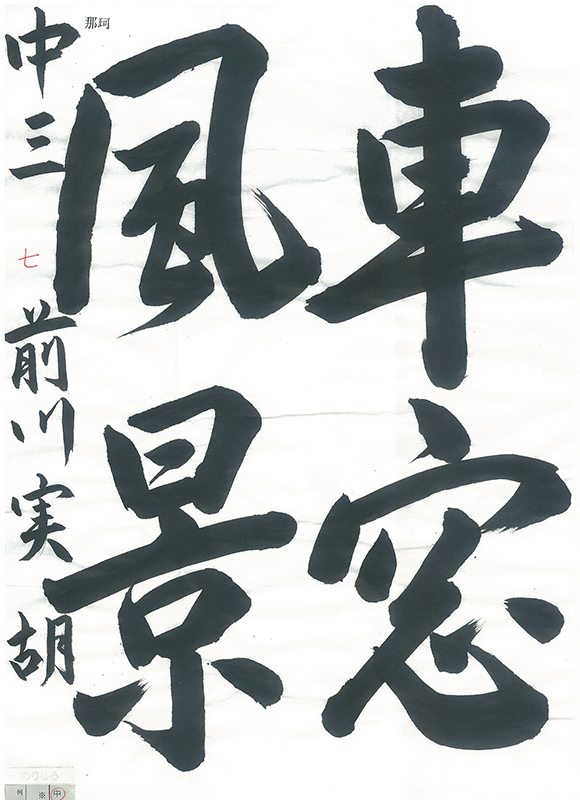 車窓
風景
那珂
中三 前川実胡
七
のりしろ
例 ※ 中